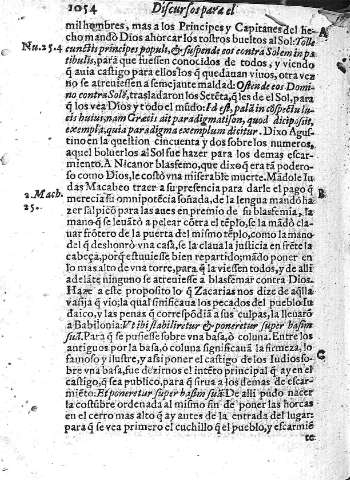 1054 Discursos para el
mil hombres, mas a los Principes y Capitanes del he-
cho mandò Dios ahorcar los rostros bueltos al Sol: Tolle
Nu.25.4 cunctos principes populi, & suspende eos contra Solem in pa
tibulis, para que fuessen conocidos de todos, y viendo
q̃ auia castigo para ellos los q̃ quedauan viuos, otra vez
no se atreuiessen a semejante maldad: Ostende eos Domi
no contra Solẽ, trasladaron los Setẽta, q̃ les de el Sol, para
q̃ los vea Dios y todo el mũdo: Id est, palã in cõspectu lu-
cis huius, nam Græci ait paradigmatison, quod
exempla, quia paradigma exemplum dicitur. Dixo Agus-
tino en la question cincuenta y dos sobre los numeros,
aquel boluerlos al Sol fue hazer para los demas escar-
miento. A Nicanor blasfemo, que dixo q̃ era tã podero-
so como Dios, le costò vna miserable muerte. Mãdole Iu
2. Mach. das Macabeo traer a su presencia para darle el pago q̃
25. merecia su omnipotẽcia soñada, de la lengua mandò ha
zer salpicò para las aues en premio de su blasfemia, la
mano q̃ se leuãtò a pelear cõtra el tẽplo, se la mãdò cla
uar frõtero de la puerta del mismo tẽplo, como la mano
del q̃ deshonrò vna casa, se la claua la justicia en frẽte la
cabeça, porq̃ estuuiesse bien repartido; mãdò poner en
lo mas alto de vna torre, para q̃ la viessen todos, y de alli
adelãte ninguno se atreuiesse a blasfemar contra Dios.
Haze a este proposito lo q̃ Zacarias nos dize de aq̃lla
vasija q̃ vio; la qual significaua los pecados del pueblo Iu
daico, y las penas q̃ correspõdiã a sus culpas, la lleuarõ
a Babilonia: Vt ibi stabiliretur & poneretur super basim
suã. Para q̃ se pusiesse sobre vna basa, ò coluna. Entre los
antiguos por la basa, ò coluna significauã la firmeza, lo
famoso y ilustre, y assi poner el castigo de los Iudios so-
bre vna basa, fue dezirnos el intẽto principal q̃ ay en el
castigo, q̃ sea publico, para q̃ sirua a los demas de escar-
miẽto: Et poneretur super basim suã. De alli pudo nacer
la costũbre ordenada al mismo fin de poner las horcas
en el cerro mas alto q̃ ay antes de la entrada del lugar:
para q̃ se vea primero el cuchillo q̃ el pueblo, y escarmiẽ
te
A
B
C